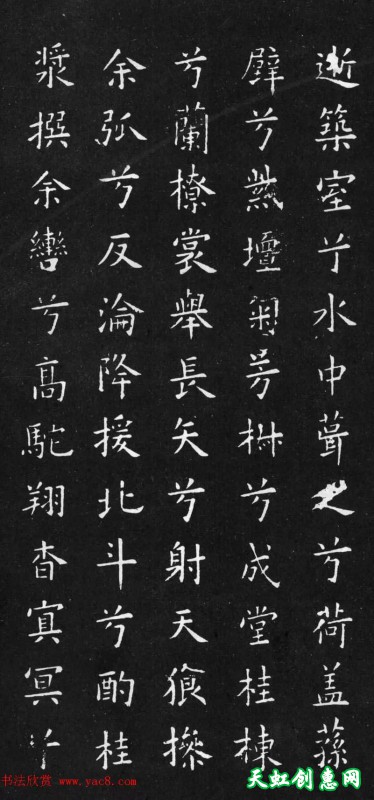 逝築室兮水中葺之兮荷盖蓀
壁兮紫壇匊芳椒兮成堂桂棟
兮蘭橑裳舉長矢兮射天狼操
余弧兮反淪降援北斗兮酌桂
漿撰余轡兮高駝翔杳冥冥兮
书法欣赏 www.yac8.com
天虹创惠网